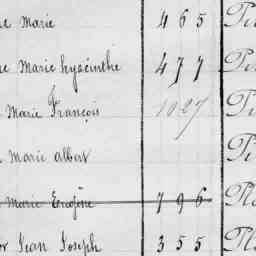 Marie 465
Marie hyacinthe 477
Marie François 1027
Marie albert
Marie Eugène 796
Jean Joseph 355